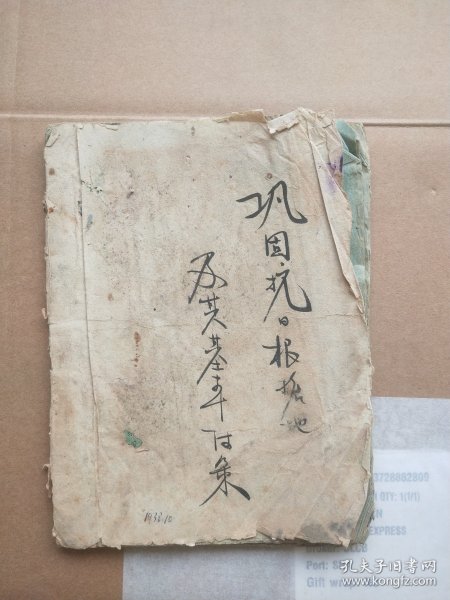 巩固抗日根据地
及其基本政策
1938.10
3728862809
QTY: 1(1/1)
EXPRESS
Port:
Gift
孔夫子旧书网
www.kongfz.com